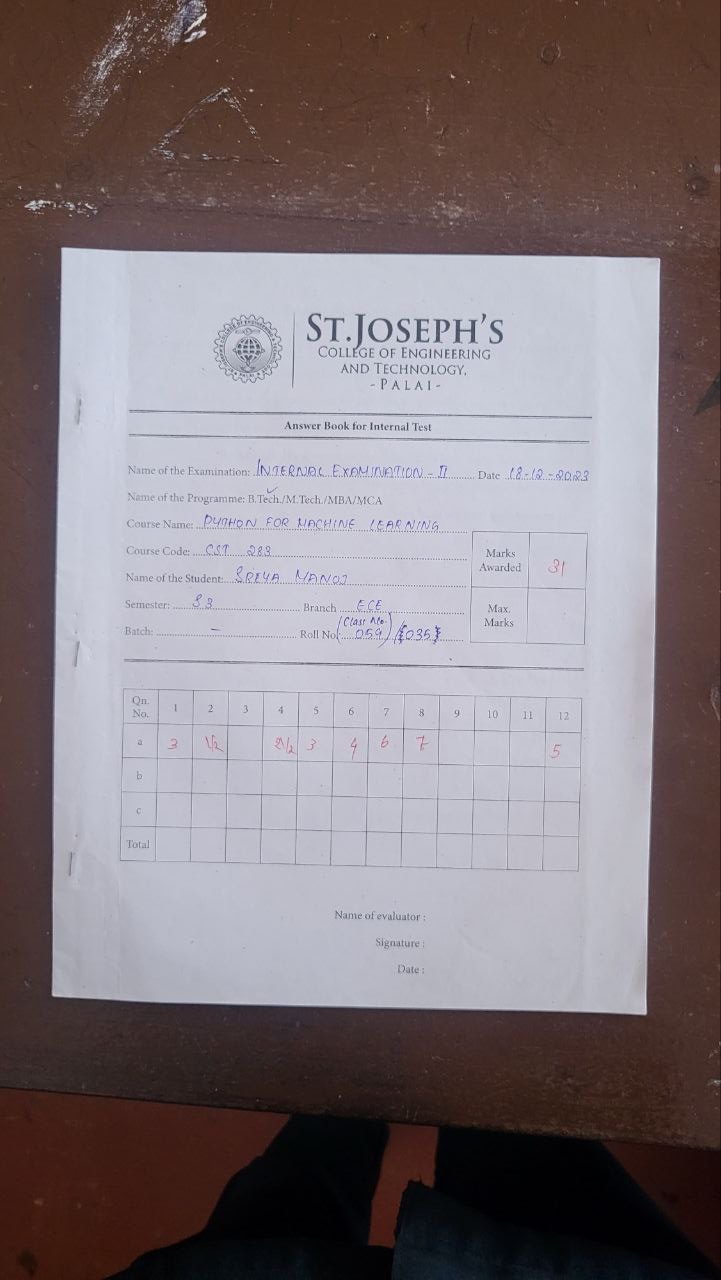 ST.JOSEPH'S
COLLEGE OF ENGINEERING
AND TECHNOLOGY,
- PALAI -
Answer Book for Internal Test
Name of the Examination: INTERNAL EXAMINATION - II Date 18-12-2023
Name of the Programme: B.Tech./M.Tech./MBA/MCA
Course Name: PYTHON FOR MACHINE LEARNING
Course Code: CST 283
Name of the Student: SREYA MANOJ
Marks Awarded 31
Semester: S3 Branch ECE
Max. Marks
(Class No.)
Batch: - Roll No. 059 / 035
Qn. No. 1 2 3 4 5 6 7 8 9 10 11 12
a 3 1/2 2 1/2 3 4 6 7 5
b
c
Total
Name of evaluator :
Signature :
Date :